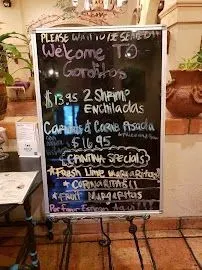 PLEASE WAIT TO BE SEATED!!
Welcome TO
Gorditos
$13.95 2 Shrimp
Enchiladas
Carnitas & Carne Asada
$16.95
CANTINA SPECIALS
*Fresh Lime Margaritas
*CORONARITAS!!
*FRUIT MARGARITAS
Por Favor Esperen Aqui